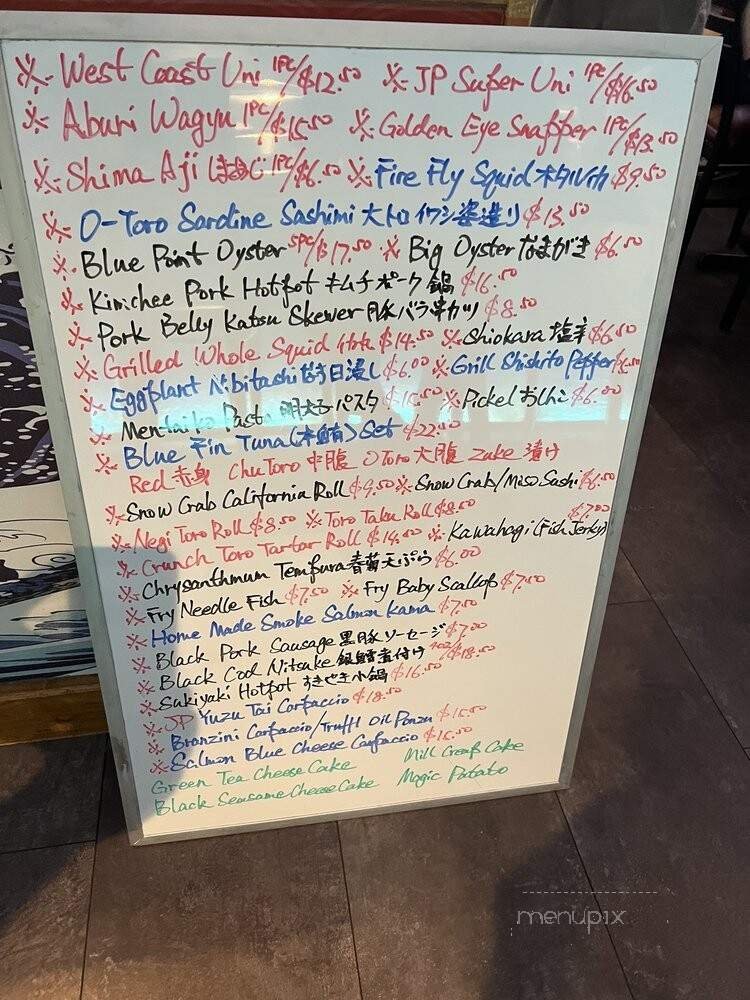 ※ West Coast Uni 1PC/$12.50 ※ JP Super Uni 1PC/$16.50
※ Aburi Wagyu 1PC/$15.50 ※ Golden Eye Snapper 1PC/$13.50
※ Shima Aji しまあじ 1PC/$6.50 ※ Fire Fly Squid ホタルイカ $9.50
※ O-Toro Sardine Sashimi 大トロイワシ姿造り $13.50
※ Blue Point Oyster 5PC/$17.50 ※ Big Oyster なまがき $6.50
※ Kimchee Pork Hotpot キムチポーク鍋 $16.50
※ Pork Belly Katsu Skewer 豚バラ串カツ $8.50
※ Grilled Whole Squid イカ $14.50 ※ Shiokara 塩辛 $6.50
※ Eggplant Nibitashi 日浸し $6.00 ※ Grill Shishito Pepper
※ Mentaiko Pasta 明太子パスタ $15.50 ※ Pickel おしんこ $6.00
※ Blue Fin Tuna (本鮪) Set $22.50
Red 赤身 ChuToro 中腹 OToro 大腹 Zuke 漬け
※ Snow Crab California Roll $9.50 ※ Snow Crab/Miso Sashi $6.50
※ Negi Toro Roll $8.50 ※ Toro Taku Roll $8.50
※ Crunch Toro Tartar Roll $14.50 ※ Kawahagi (Fish Jerky) $7.00
※ Chrysanthmum Tempura 春菊天ぷら $6.00
※ Fry Needle Fish $7.50 ※ Fry Baby Scallop $7.50
※ Home Made Smoke Salmon Kama $7.50
※ Black Pork Sausage 黒豚ソーセージ $7.00
※ Black Cod Nitsuke 銀鱈煮付け $18.50
※ Sukiyaki Hotpot すきやき小鍋 $16.50
※ JP Yuzu Tai Carpaccio $18.50
※ Branzini Carpaccio/Truffl Oil Ponzu $15.50
※ Salmon Blue Cheese Carpaccio $15.50
Green Tea Cheese Cake Mill Creap Cake
Black Seasame Cheese Cake Magic Potato
menupix